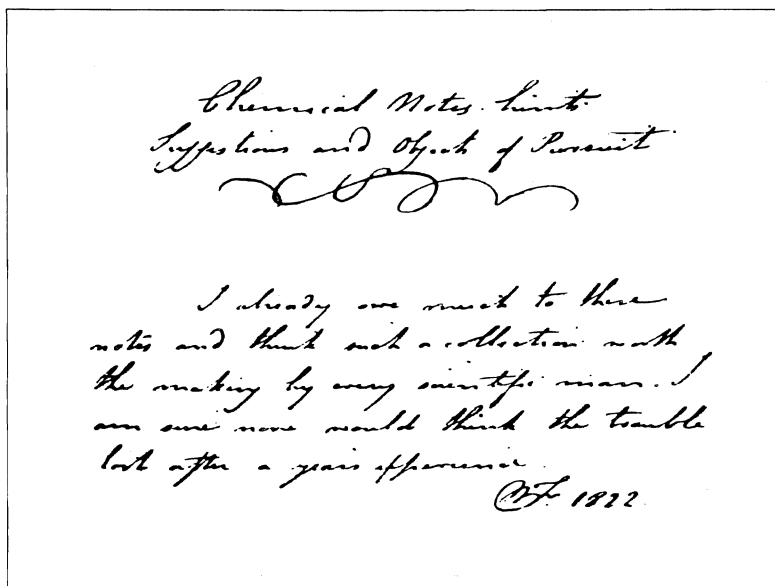 Chemical Notes. hints.
Suggestions and Objects of Pursuit.
I already owe much to these
notes and think such a collection worth
the making by every scientific man. I
am sure none would think the trouble
lost after a years experience.
MF. 1822